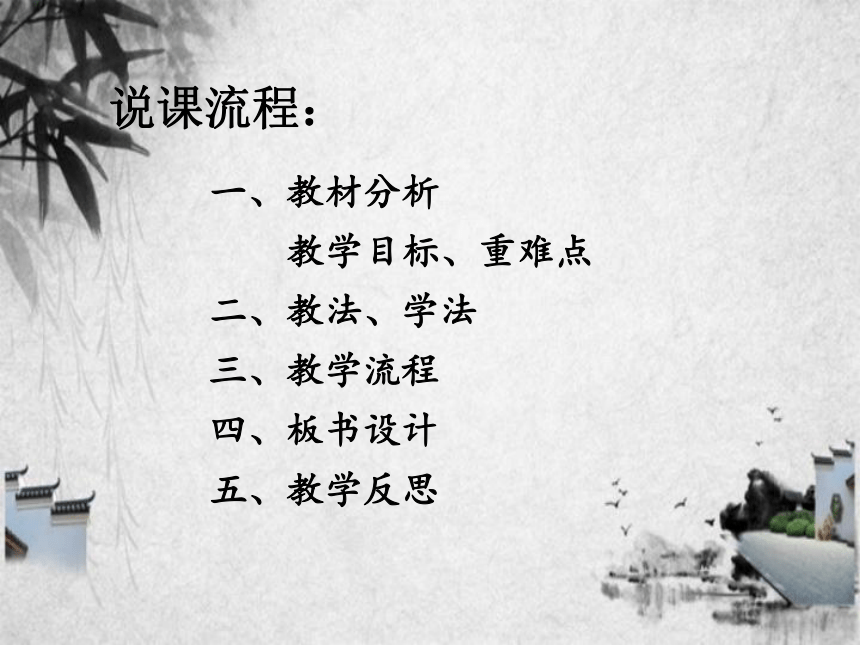 说课流程：
一、教材分析
教学目标、重难点
二、教法、学法
三、教学流程
四、板书设计
五、教学反思